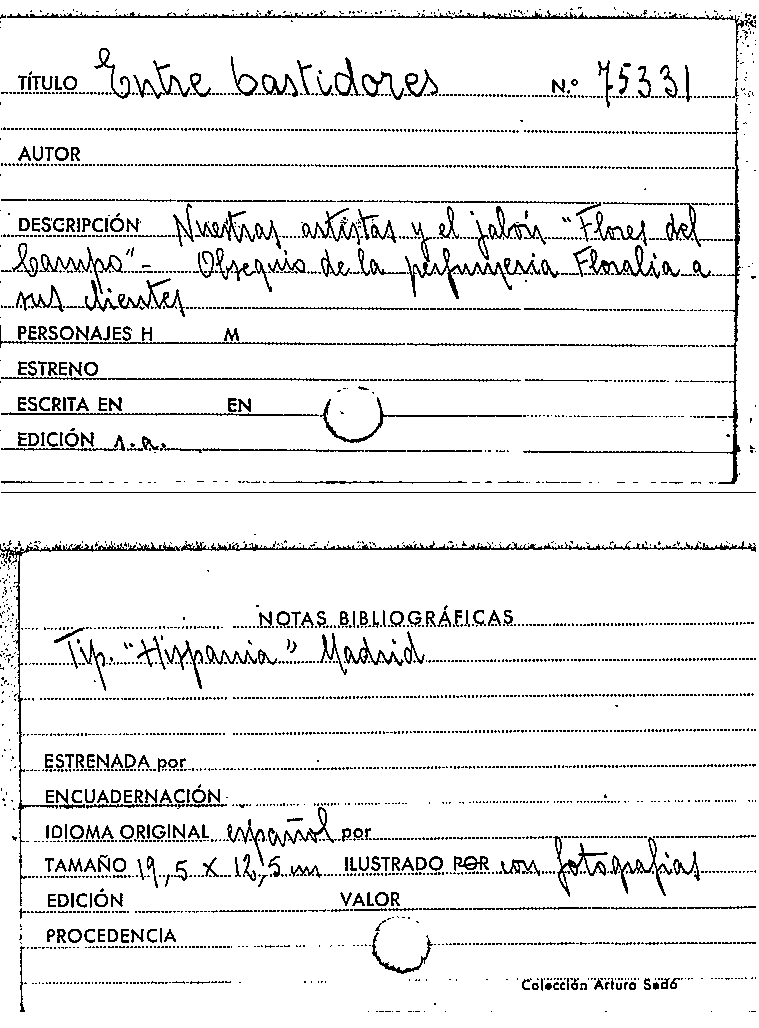 TÍTULO Entre bastidores N.º 75331
AUTOR
DESCRIPCIÓN Nuestras artistas y el jabón "Flores del
Campo" - Obsequio de la perfumeria Floralia a
sus clientes
PERSONAJES H M
ESTRENO
ESCRITA EN EN
EDICIÓN s.a.
NOTAS BIBLIOGRÁFICAS
Tip. "Hispania" Madrid
ESTRENADA por
ENCUADERNACIÓN
IDIOMA ORIGINAL español por
TAMAÑO 19,5 x 12,5 cm ILUSTRADO POR con fotografias
EDICIÓN VALOR
PROCEDENCIA
Colección Arturo Sedó